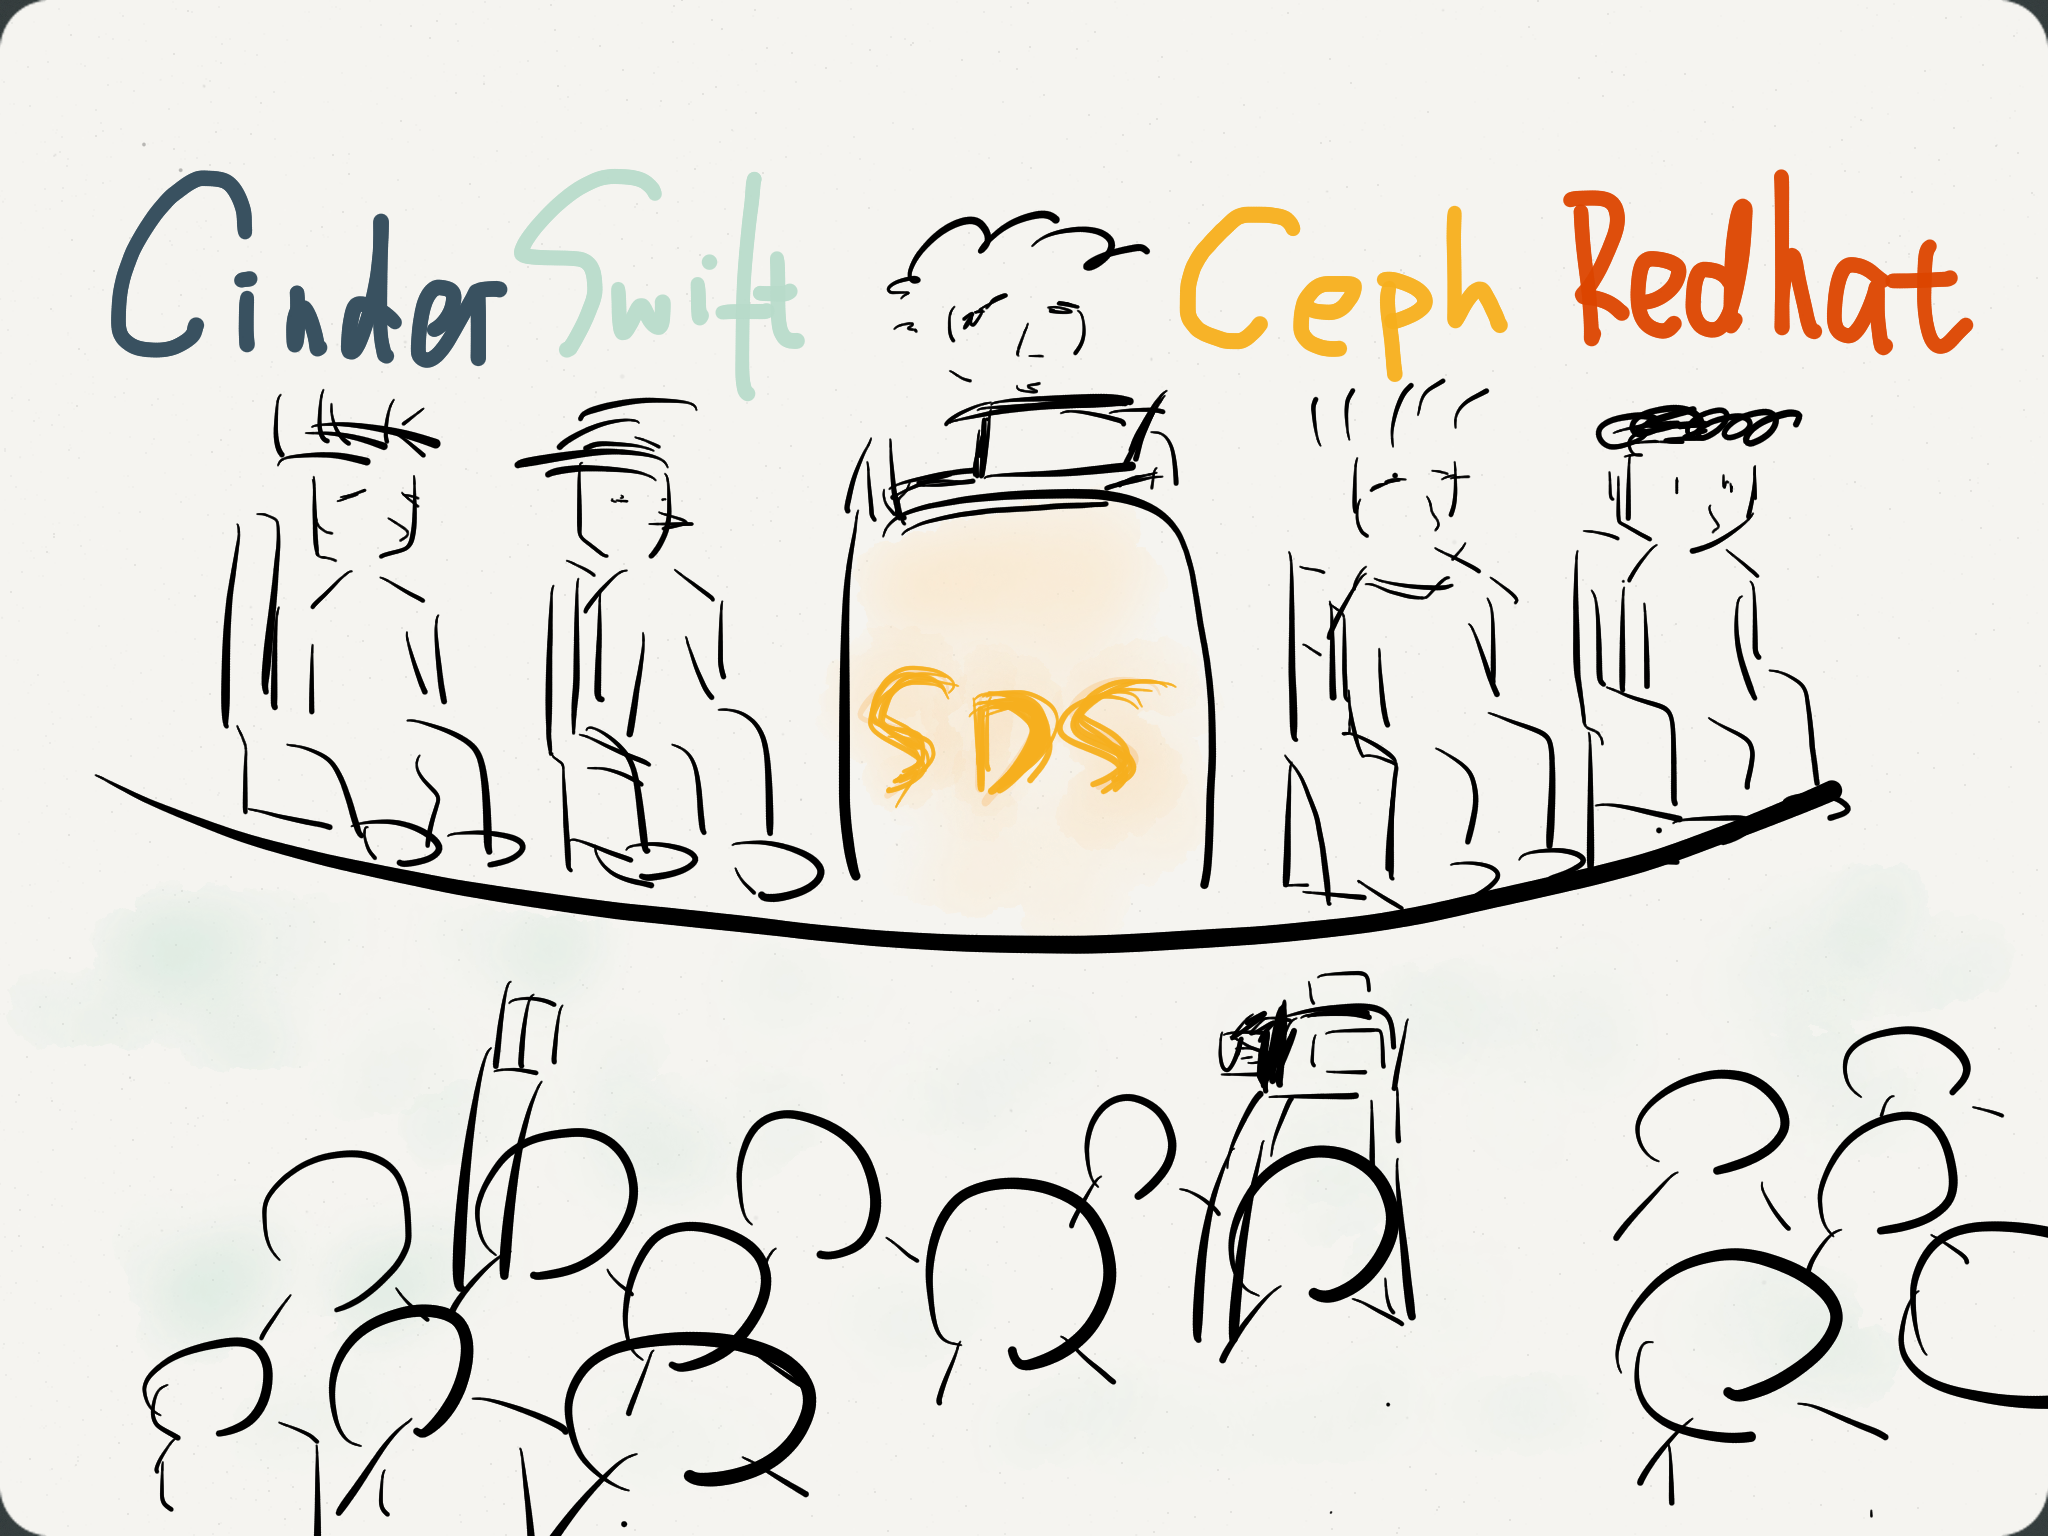 Cinder Swift Ceph Redhat
SDS